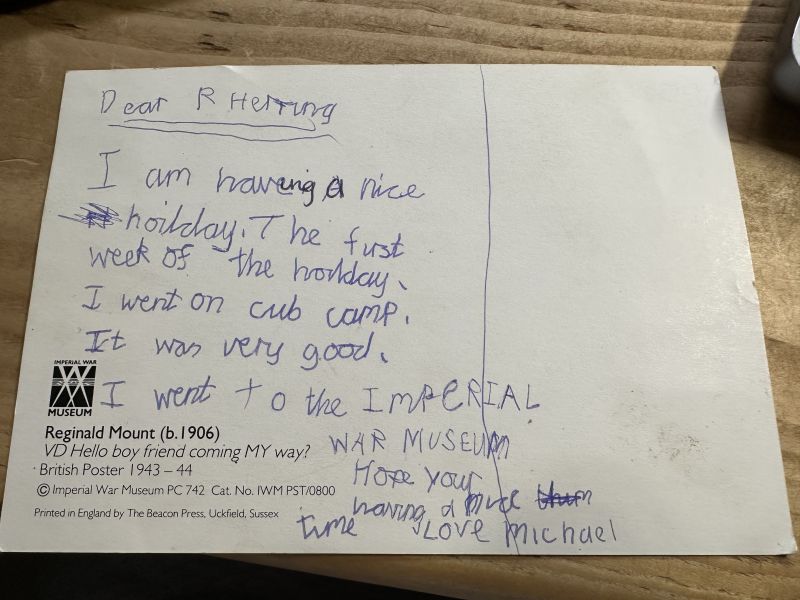 Dear R Herring
I am haveing a nice
hoilday. The first
week of the hoilday.
I went on cub camp.
It was very good.
I went to the IMPERIAL
WAR MUSEUM
Hope your
having a nice
time Love Michael
IMPERIAL WAR
MUSEUM
Reginald Mount (b.1906)
VD Hello boy friend coming MY way?
British Poster 1943 – 44
© Imperial War Museum PC 742 Cat. No. IWM PST/0800
Printed in England by The Beacon Press, Uckfield, Sussex